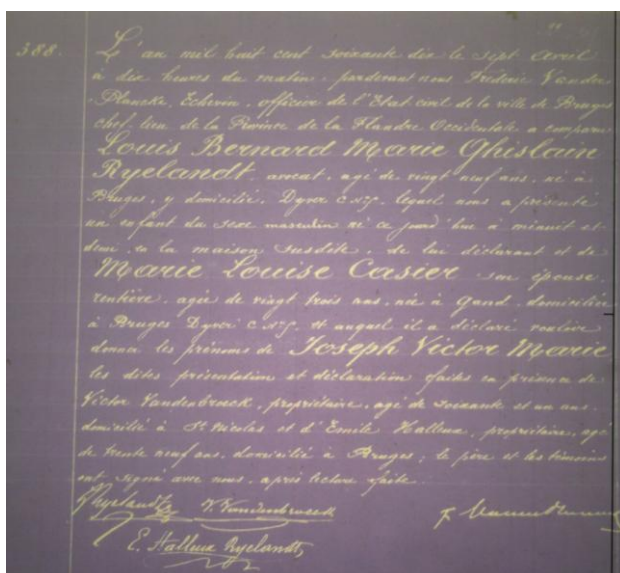 388.
L'an mil huit cent soixante dix le sept avril
à dix heures du matin, pardevant nous Fréderic Vandre
Plancke, Echevin, officier de l'Etat civil de la ville de Bruges
chef lieu de la Province de la Flandre Occidentale a comparu
Louis Bernard Marie Ghislain
Ryelandt avocat, agé de vingt neuf ans, né à
Bruges, y domicilié, Dyver C N° 5. lequel nous a présenté
un enfant du sexe masculin né ce jourd'hui à minuit et
demi, en la maison susdite, de lui déclarant et de
Marie Louise Casier son épouse
rentière, agée de vingt trois ans, née à Gand, domiciliée
à Bruges Dyver C N° 5. et auquel il a déclaré vouloir
donner les prénoms de Joseph Victor Marie
les dites présentation et déclaration faites en présence de
Victor Vandenbroeck, propriétaire, agé de soixante et un ans,
domicilié à St Nicolas et d'Emile Halleux, propriétaire, agé
de trente neuf ans, domicilié à Bruges; le père et les témoins
ont signé avec nous, après lecture faite.
L Ryelandt V. Vandenbroeck F
E. Halleux Ryelandt,